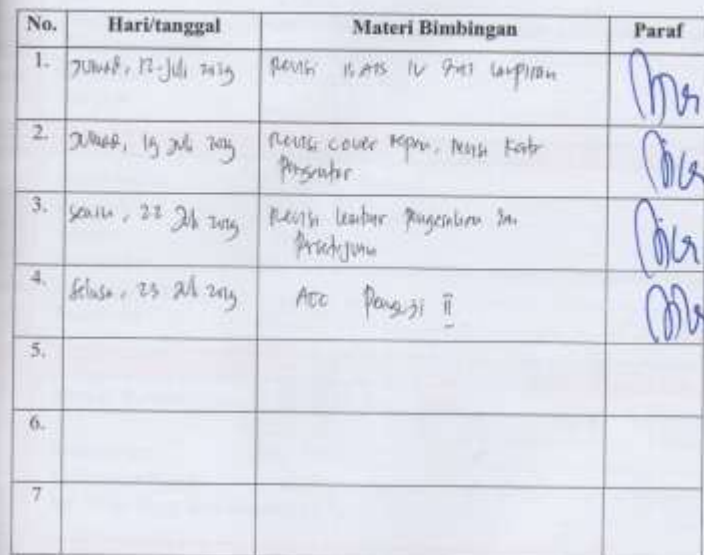 No. Hari/tanggal Materi Bimbingan Paraf
1. Jumat, 12 Juli 2019 Revisi BAB IV lampiran
2. Jumat, 19 Juli 2019 Revisi cover depan, revisi kata
Pengantar
3. Senin, 22 Juli 2019 Revisi lembar pengesahan
Persetujuan
4. Selasa, 23 Juli 2019 ACC Penguji II
5.
6.
7